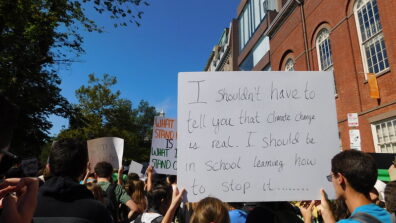 I shouldn't have to
tell you that climate change
is real. I should be
in school learning how
to stop it.........
WHAT
STAND
WHAT I
STAND O